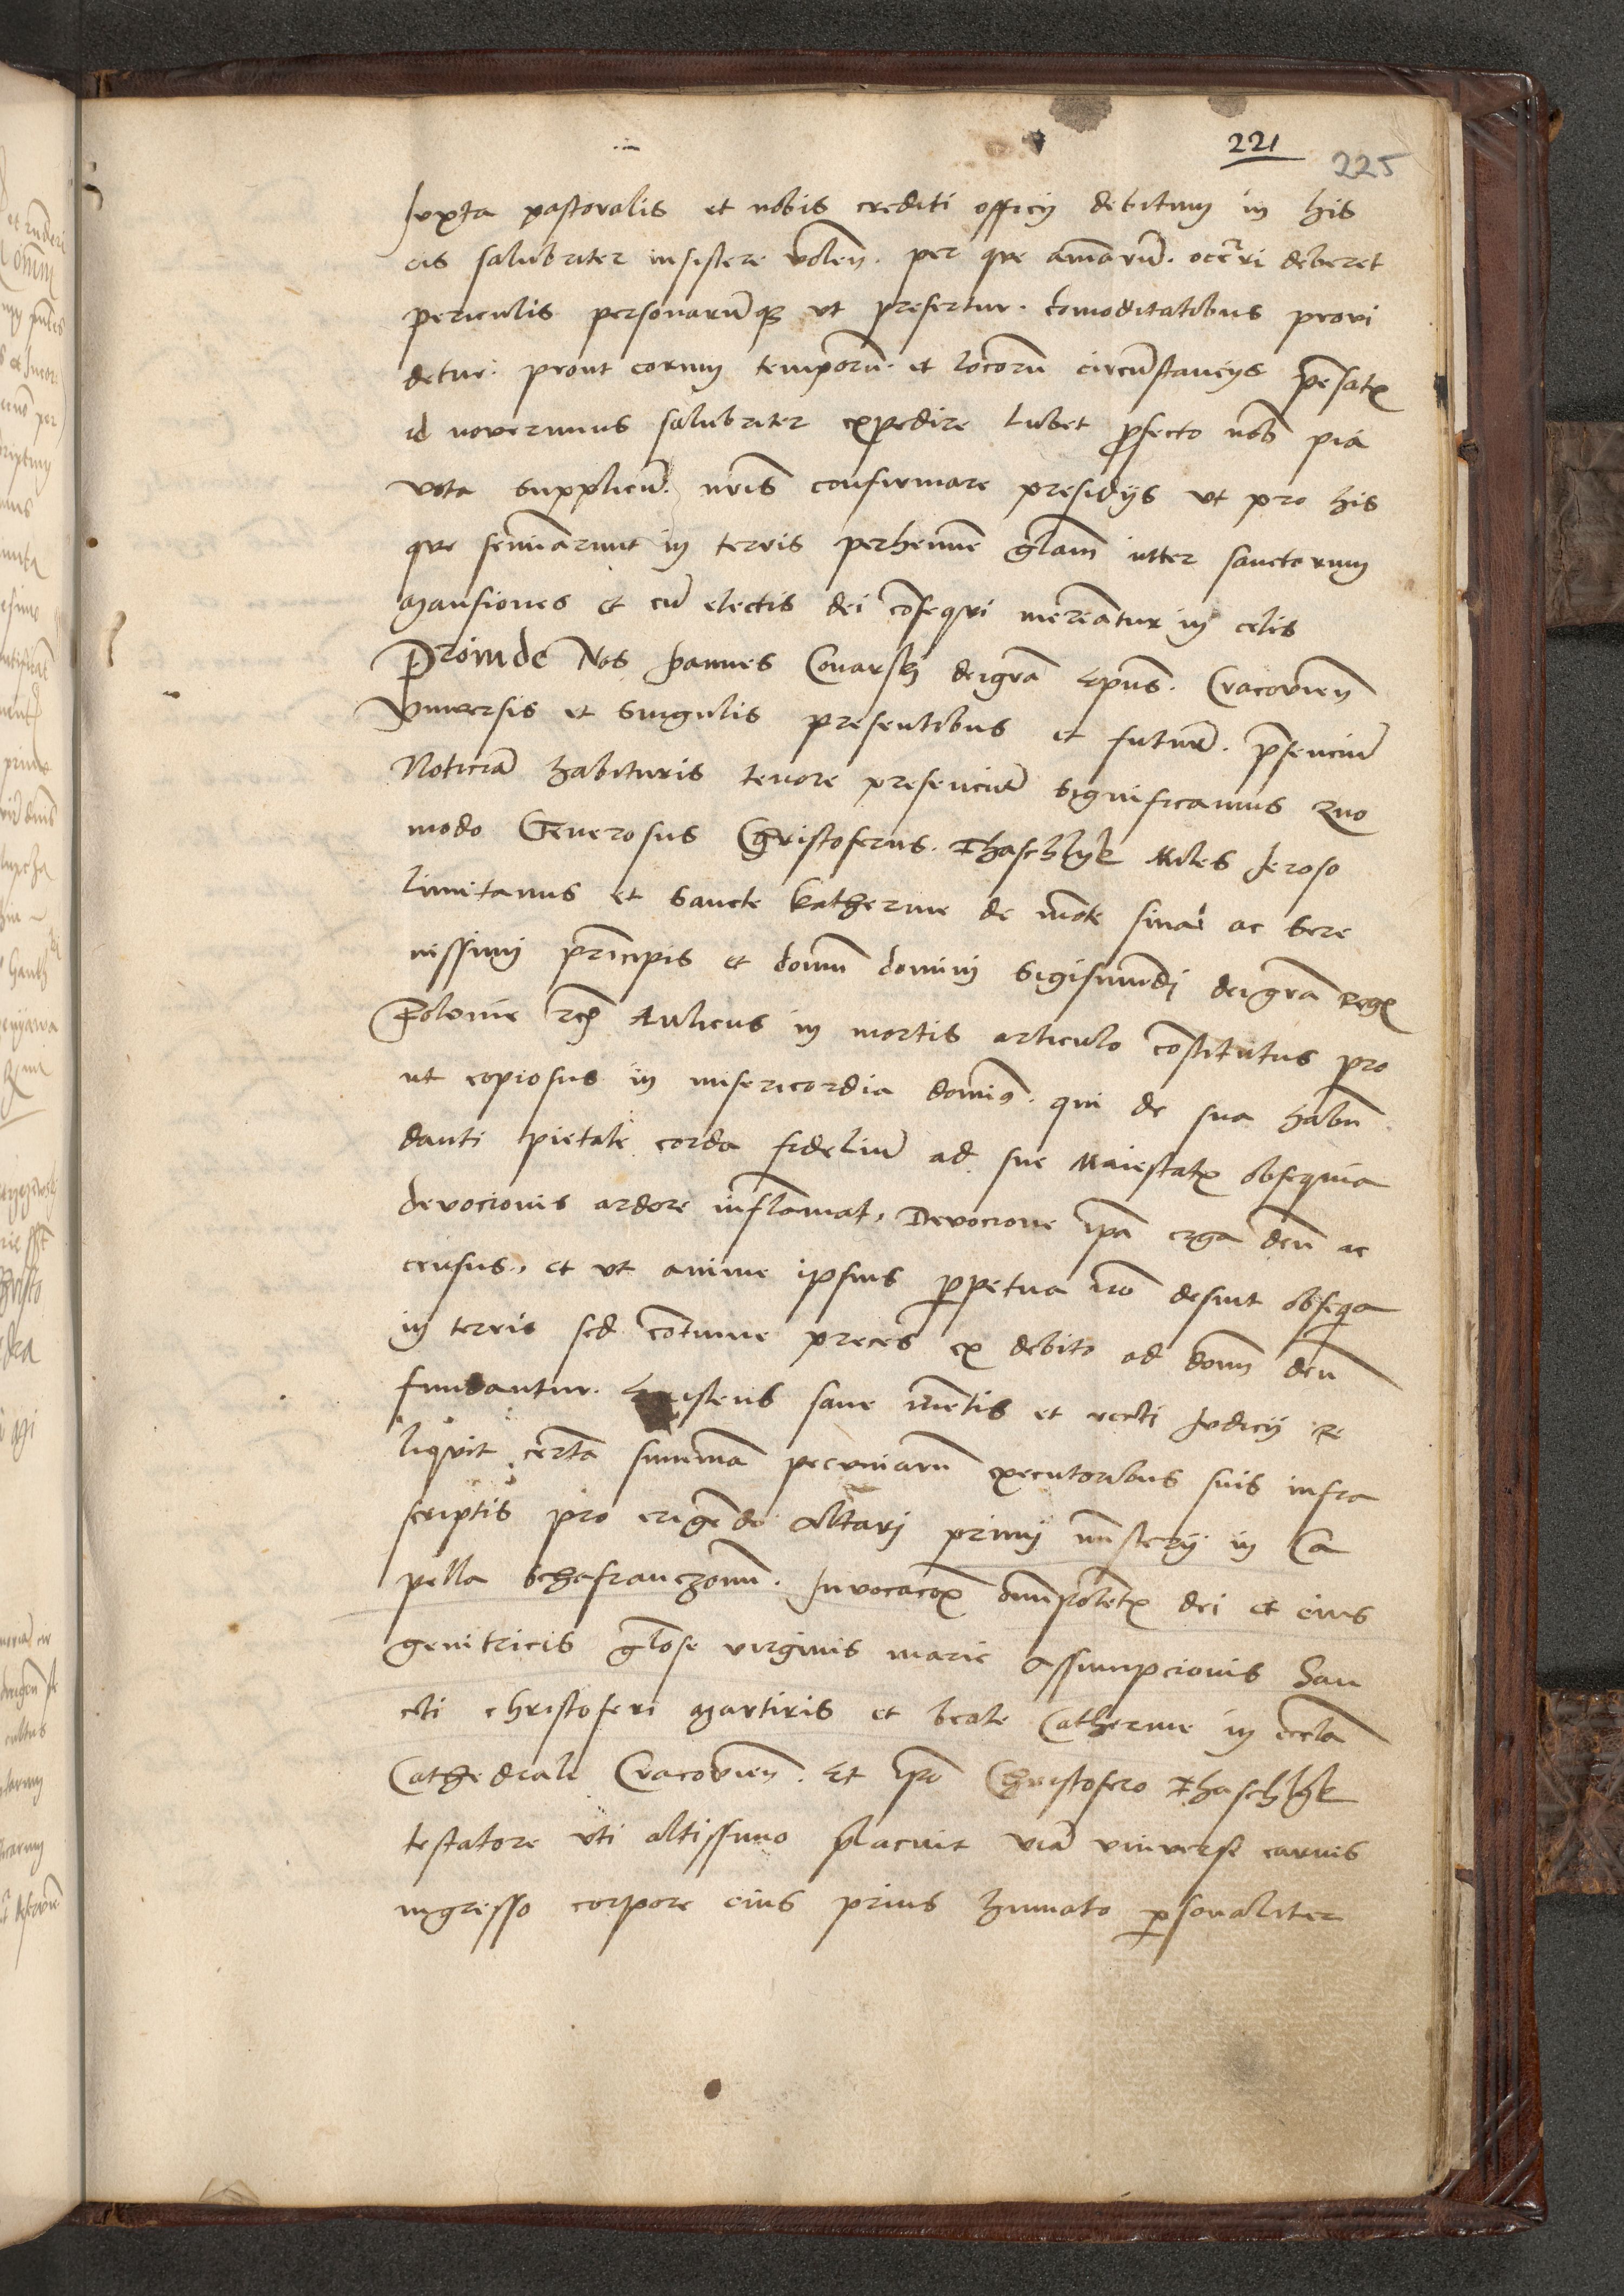 221 225
Iuxta pastoralis et nobis crediti officij debitum in his
eis salubriter insistere volen. per que animarū. occurri deberet
periculis personarūq; ut prefertur. comoditatibus provi
detur. prout eorum temporū. et locorū circūstancijs pēsatꝭ
id noverimus salubriter expedire Lubet profecto nob pia
vota supplicū. nrīs confirmare presidijs ut pro his
que seminarunt in terris perhennē glam inter sanctorum
mansiones et cū electis dei cōsequi mereātur in celis
Proinde Nos Joannes Conarsky dei gra Epus. Cracovien
Universis et singulis presentibus et futur. psenciū
Noticiā habituris tenore presenciū significamus Quo
modo Generosus Christoferus. Thaschlyk Miles Jeroso
limitanus et sancte katherine de mōte sinai ac Sere
nissimi principis et domini domini Sigismūdi dei gra Regꝭ
Polonie rcz Aulicus in mortis articulo cōstitutus pro
ut copiosus in misericordia dominꝰ. qui de sua habun
danti pietate corda fideliū ad sue Maiestatꝭ obsequia
devocionis ardore inflāmat, Devocione ipa erga deū ac
census, et ut anime ipsius perpetua nō desint obseqa
in terris sed cōtinue preces ex debito ad dom deū
fundantur. Existens sane mētis et recti Judicij re
liquit certā summā pecuniarū executoribus suis infra
scriptis pro erigēdo Altari primi mīsterij in Ca
pella Schafranczonū. Invocacōꝭ omīpotētꝭ dei et eius
genitricis glōse virginis marie Assumpcionis San
cti christoferi martiris et beate Catherine in eccla
Cathedrali Cracovien. Et ipo Christofero Thaschlyk
testatore uti altissimo placuit viā universe carnis
ingresso corpore eius prius humato personaliter